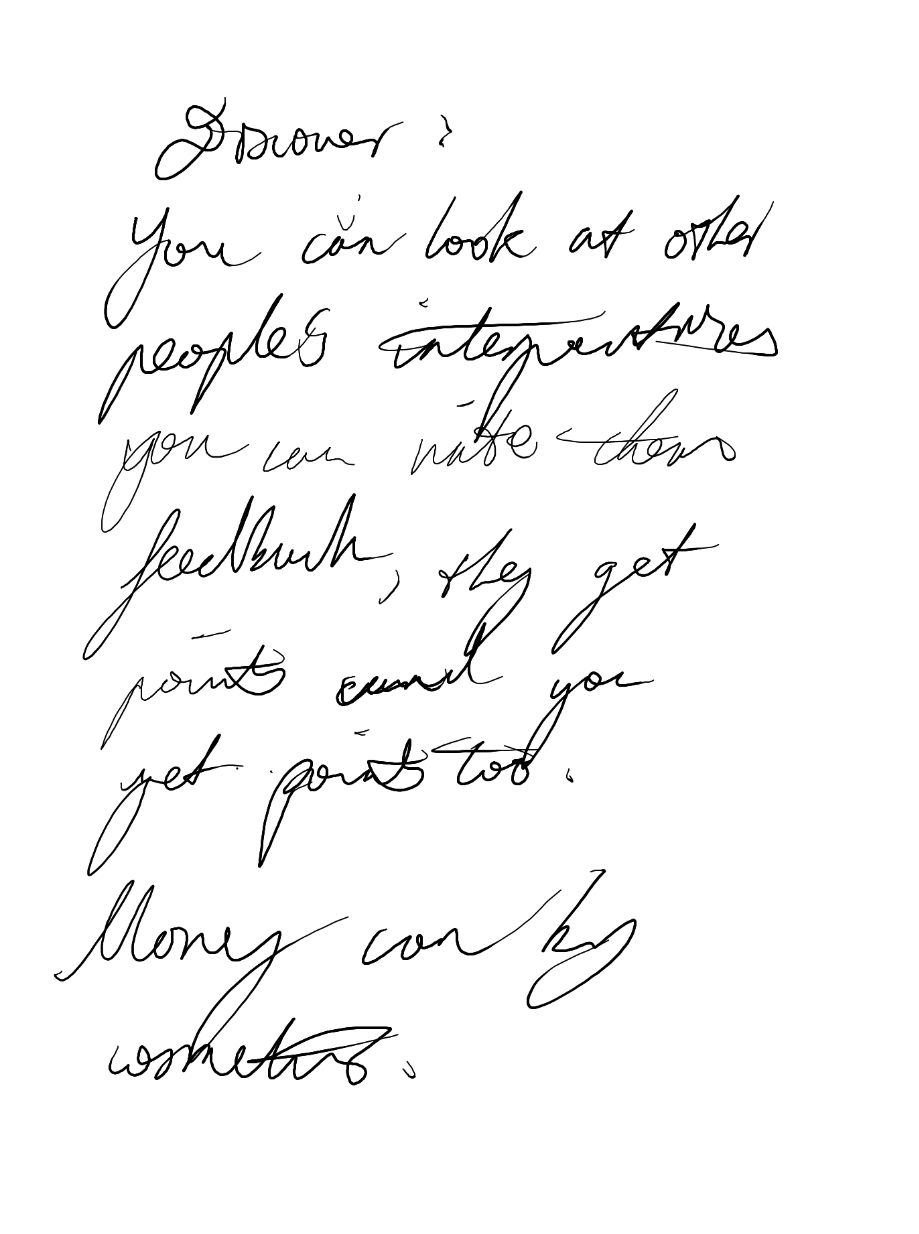 Discover:
You can look at other
people's
you can write them
feedback, they get
points and you
get points too.
Money can by
cosmetics.